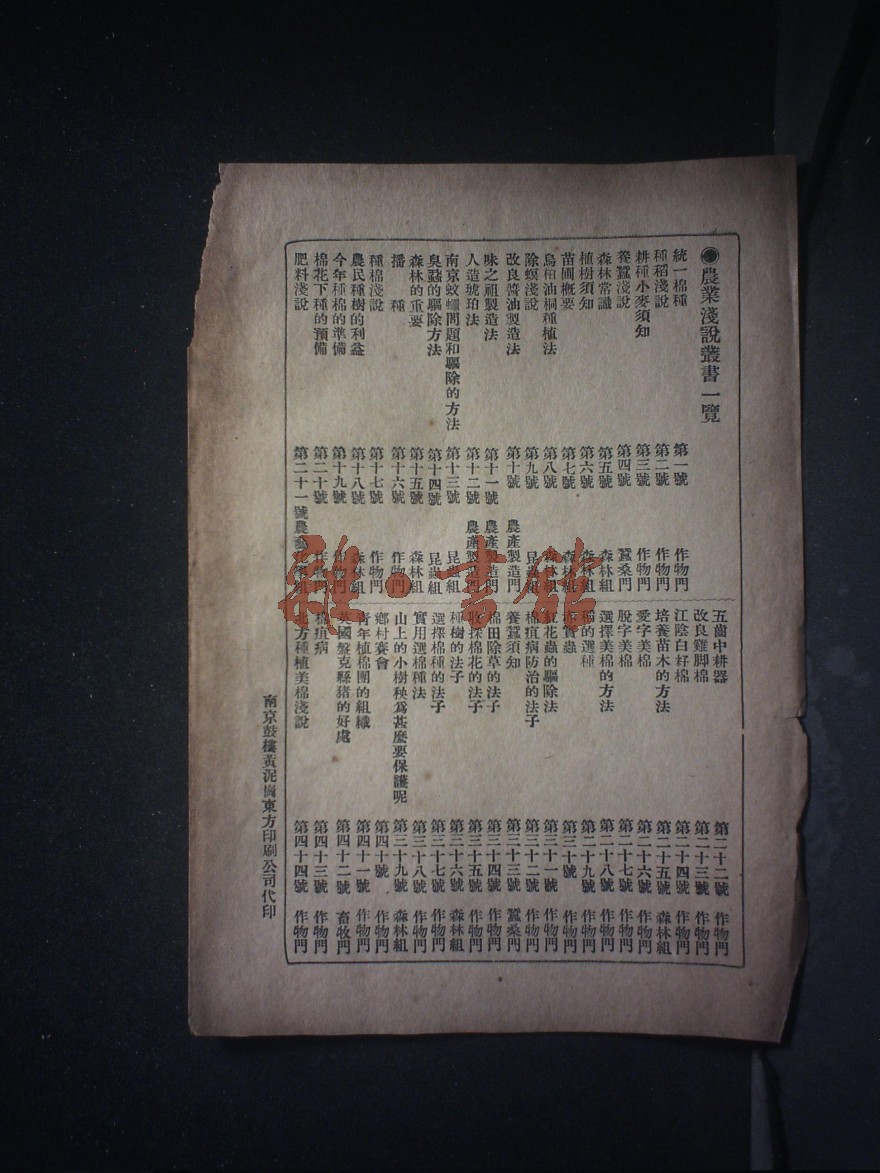 ●農業淺說叢書一覽
統一棉種 第一號 作物門
種稻淺說 第二號 作物門
耕種小麥須知 第三號 作物門
養蠶淺說 第四號 蠶桑門
森林常識 第五號 森林組
植樹須知 第六號 森林組
苗圃概要 第七號 森林組
烏桕油桐種植法 第八號 森林組
除螟淺說 第九號 昆蟲組
改良醬油製造法 第十號 農產製造門
味之祖製造法 第十一號 農產製造門
人造琥珀法 第十二號 農產製造門
南京蚊蠅問題和驅除的方法 第十三號 昆蟲組
臭蟲的驅除方法 第十四號 昆蟲組
森林的重要 第十五號 森林組
播種 第十六號 作物門
種棉淺說 第十七號 作物門
農民種樹的利益 第十八號 森林組
今年種棉的準備 第十九號 作物門
棉花下種的預備 第二十號 作物門
肥料淺說 第二十一號 農藝化學組
五齒中耕器 第二十二號 作物門
改良雞脚棉 第二十三號 作物門
江陰白籽棉 第二十四號 作物門
培養苗木的方法 第二十五號 森林組
愛字美棉 第二十六號 作物門
脫字美棉 第二十七號 作物門
選擇美棉的方法 第二十八號 作物門
稻的選種 第二十九號 作物門
實蟲 第三十號 作物門
花蟲的驅除法 第三十一號 作物門
棉疽病防治的法子 第三十二號 作物門
養蠶須知 第三十三號 蠶桑門
棉田除草的法子 第三十四號 作物門
收採棉花的法子 第三十五號 作物門
種樹的法子 第三十六號 森林組
選擇棉種的法子 第三十七號 作物門
實用選棉種法 第三十八號 作物門
山上的小樹秧爲甚麼要保護呢 第三十九號 森林組
鄉村賽會 第四十號 作物門
青年植棉團的組織 第四十一號 作物門
英國盤克縣猪的好處 第四十二號 畜牧門
棉疽病 第四十三號 作物門
北方種植美棉淺說 第四十四號 作物門
南京鼓樓黃泥崗東方印刷公司代印
雜·書館